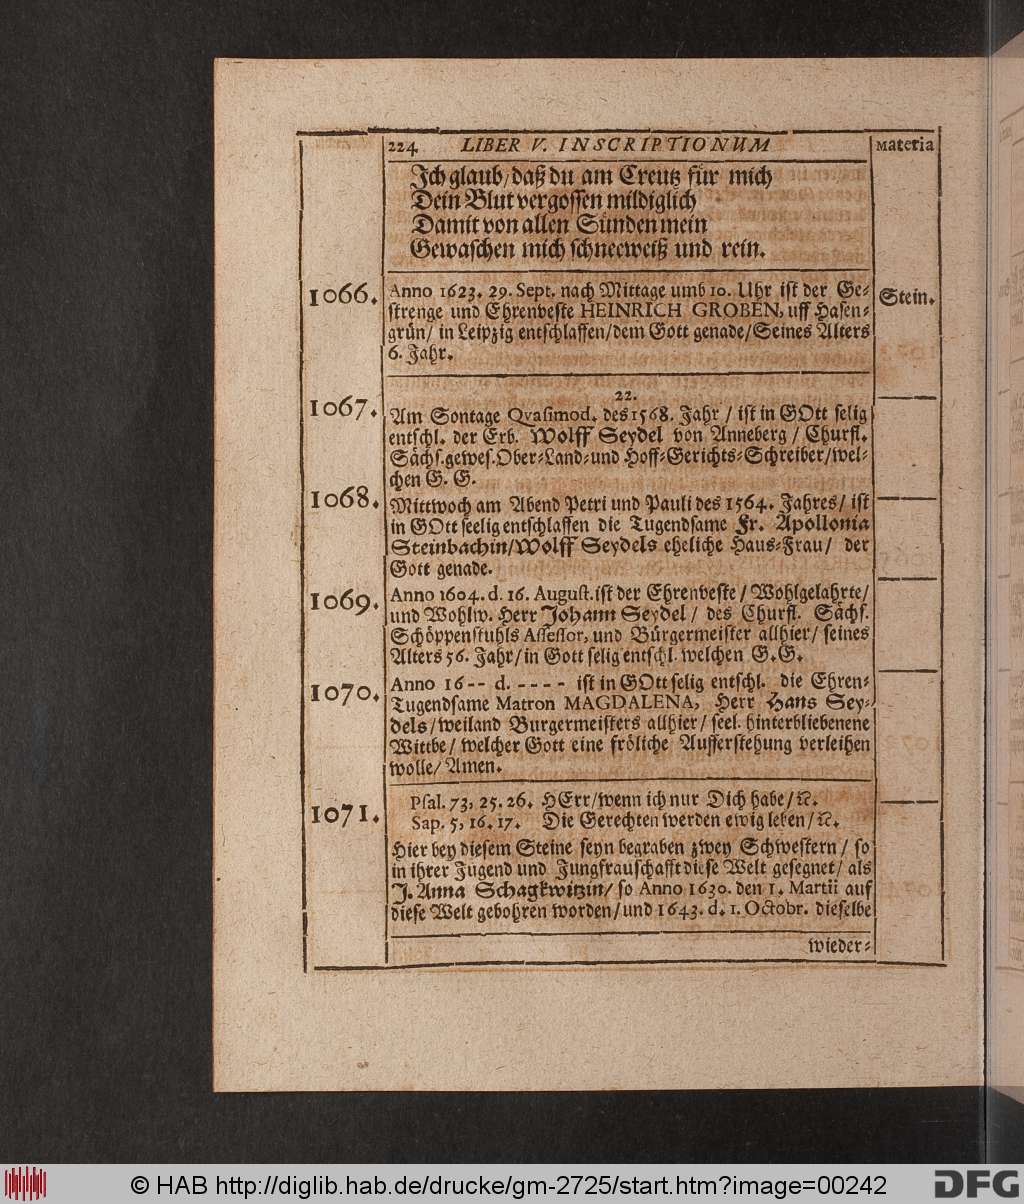 224. LIBER V. INSCRIPTIONUM Materia
Ich glaub/ daß du am Creutz für mich
Dein Blut vergossen mildiglich
Damit von allen Sünden mein
Gewaschen mich schneeweiß und rein.
1066. Anno 1623. 29. Sept. nach Mittage umb 10. Uhr ist der Ge- Stein.
strenge und Ehrenveste HEINRICH GROBEN, uff Hasen-
grün/ in Leipzig entschlaffen/ dem Gott genade/ Seines Alters
6. Jahr.
22.
1067. Am Sontage Qvasimod. des 1568. Jahr / ist in GOtt selig
entschl. der Erb. Wolff Seydel von Anneberg / Churfl.
Sächs. gewes. Ober-Land-und Hoff-Gerichts-Schreiber/ wel-
chen G. G.
1068. Mittwoch am Abend Petri und Pauli des 1564. Jahres/ ist
in GOtt seelig entschlaffen die Tugendsame Fr. Apollonia
Steinbachin/ Wolff Seydels eheliche Haus-Frau/ der
Gott genade.
1069. Anno 1604. d. 16. August. ist der Ehrenveste / Wohlgelahrte/
und Wohlw. Herr Johann Seydel / des Churfl. Sächs.
Schöppenstuhls Assessor, und Bürgermeister allhier/ seines
Alters 56. Jahr/ in Gott selig entschl. welchen G. G.
1070. Anno 16-- d. ---- ist in GOtt selig entschl. die Ehren-
Tugendsame Matron MAGDALENA, Herr Hans Sey-
dels/ weiland Burgermeisters allhier/ seel. hinterbliebenene
Wittbe/ welcher Gott eine fröliche Aufferstehung verleihen
wolle/ Amen.
1071. Psal. 73, 25. 26. HErr/ wenn ich nur Dich habe/ ꝛc.
Sap. 5, 16. 17. Die Gerechten werden ewig leben/ ꝛc.
Hier bey diesem Steine seyn begraben zwey Schwestern / so
in ihrer Jugend und Jungfrauschafft diese Welt gesegnet/ als
J. Anna Schagkwitzin/ so Anno 1630. den 1. Martii auf
diese Welt gebohren worden/ und 1643. d. 1. Octobr. dieselbe
wieder-
© HAB http://diglib.hab.de/drucke/gm-2725/start.htm?image=00242
DFG